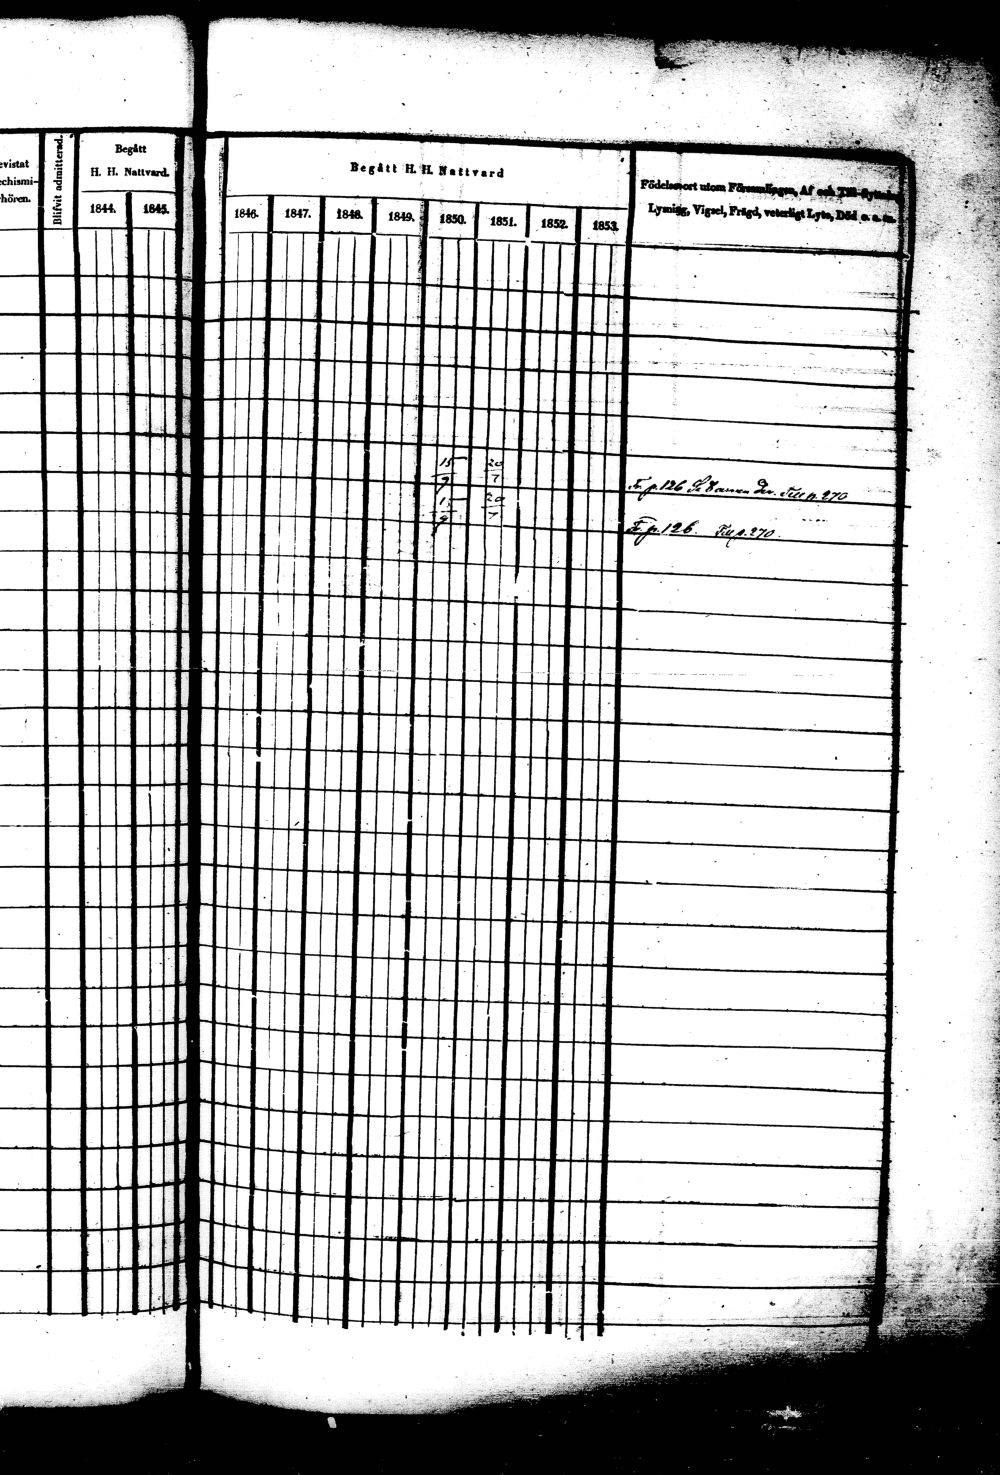 evistat
echismi-
rhören.
Blifvit admitterad.
Begått
H. H. Nattvard.
1844. 1845.
Begått H. H. Nattvard
1846. 1847. 1848. 1849. 1850. 1851. 1852. 1853.
Födelseort utom Församlingen, Af och Till-flyttning
Lysning, Vigsel, Frägd, veterligt Lyte, Död o. s. m.
15/9 20/7
Fr. p. 126 Till p. 270
15/9 20/7
Fr. p. 126. Till p. 270.